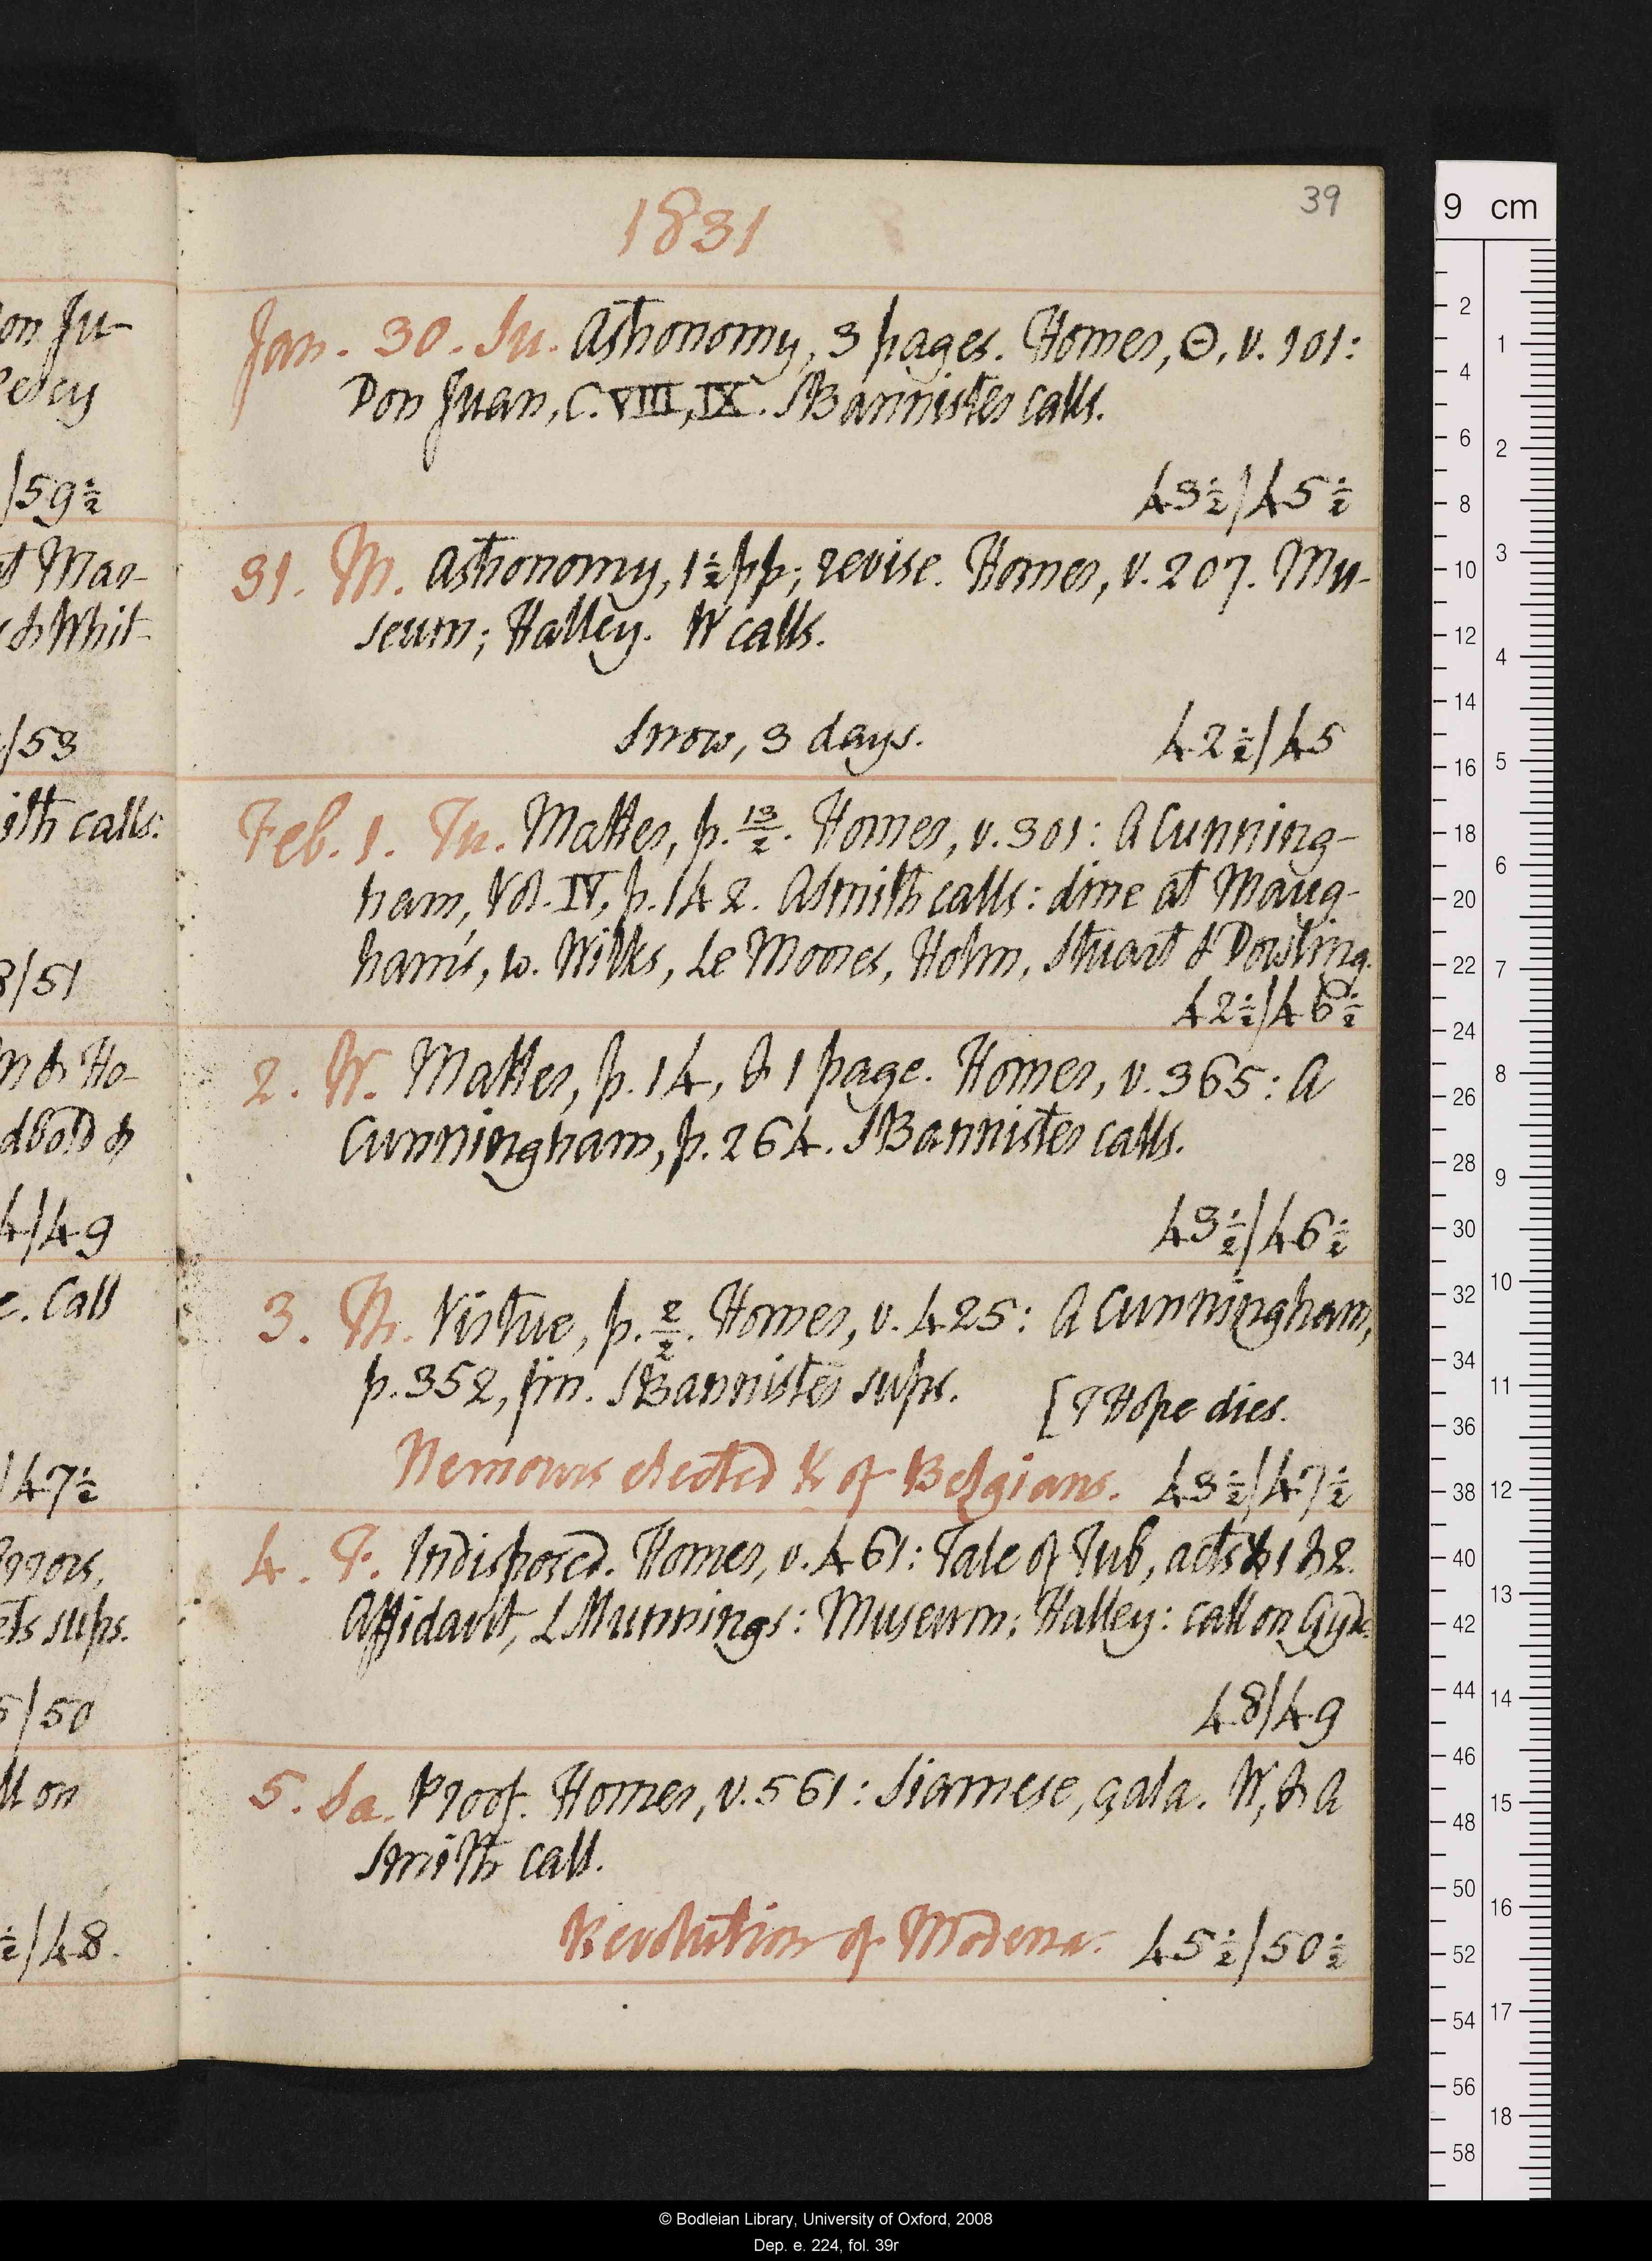 39
1831
Jan. 30. Su. Astronomy, 3 pages. Homer, Θ, v. 101:
Don Juan, C. VIII, IX. S Bannister calls.
43½/45½
31. M. Astronomy, 1½ pp; revise. Homer, v. 207. Mu-
seum; Halley. W calls.
Snow, 3 days. 42½/45
Feb. 1. Tu. Matter, p. 13/2. Homer, v. 301: A Cunning-
ham, Vol. IV, p. 142. A Smith calls: dine at Maug-
ham's, w. Wilks, Le Moores, Holm, Stuart & Dowling.
42½/46½
2. W. Matter, p. 14, & 1 page. Homer, v. 365: A
Cunningham, p. 264. S Bannister calls.
43½/46½
3. Th. Virtue, p. 2/2. Homer, v. 425: A Cunningham,
p. 352, fin. S Bannister sups. [T Hope dies.
Nemours elected K of Belgians. 43½/47½
4. F. Indisposed. Homer, v. 461: Tale of Tub, acts 1 & 2.
Affidavit, L Munnings: Museum; Halley: call on
48/49
5. Sa. Proof. Homer, v. 561: Siamese, çala. W, & A
Smith call.
Revolution of Modena. 45½/50½
on Ju-
/59½
at Mar-
& Whit-
/53
ith calls:
/51
& Ho-
/49
Call
/47½
sups.
/50
on
/48.
9 cm
2 4 6 8 10 12 14 16 18 20 22 24 26 28 30 32 34 36 38 40 42 44 46 48 50 52 54 56 58
1 2 3 4 5 6 7 8 9 10 11 12 13 14 15 16 17 18
© Bodleian Library, University of Oxford, 2008
Dep. e. 224, fol. 39r